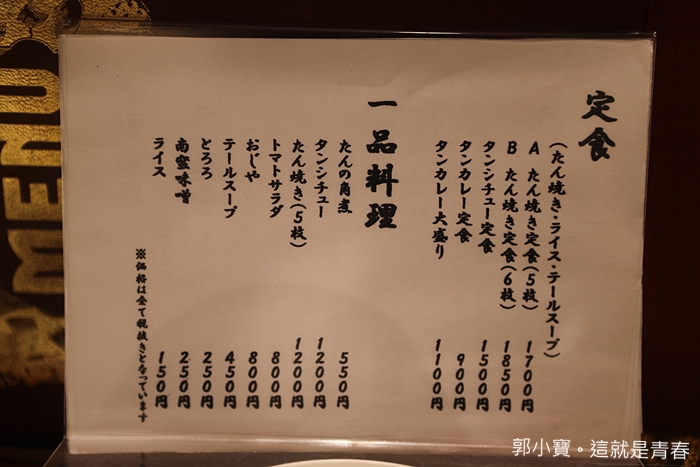 MENU
定食
(たん焼き・ライス・テールスープ)
A たん焼き定食(5枚) 1700円
B たん焼き定食(6枚) 1850円
タンシチュー定食 1500円
タンカレー定食 900円
タンカレー大盛り 1100円
一品料理
たんの角煮 550円
タンシチュー 1200円
たん焼き(5枚) 1200円
トマトサラダ 800円
おじや 800円
テールスープ 450円
とろろ 250円
南蛮味噌 250円
ライス 150円
※価格は全て税抜きとなっています
郭小寶。這就是青春